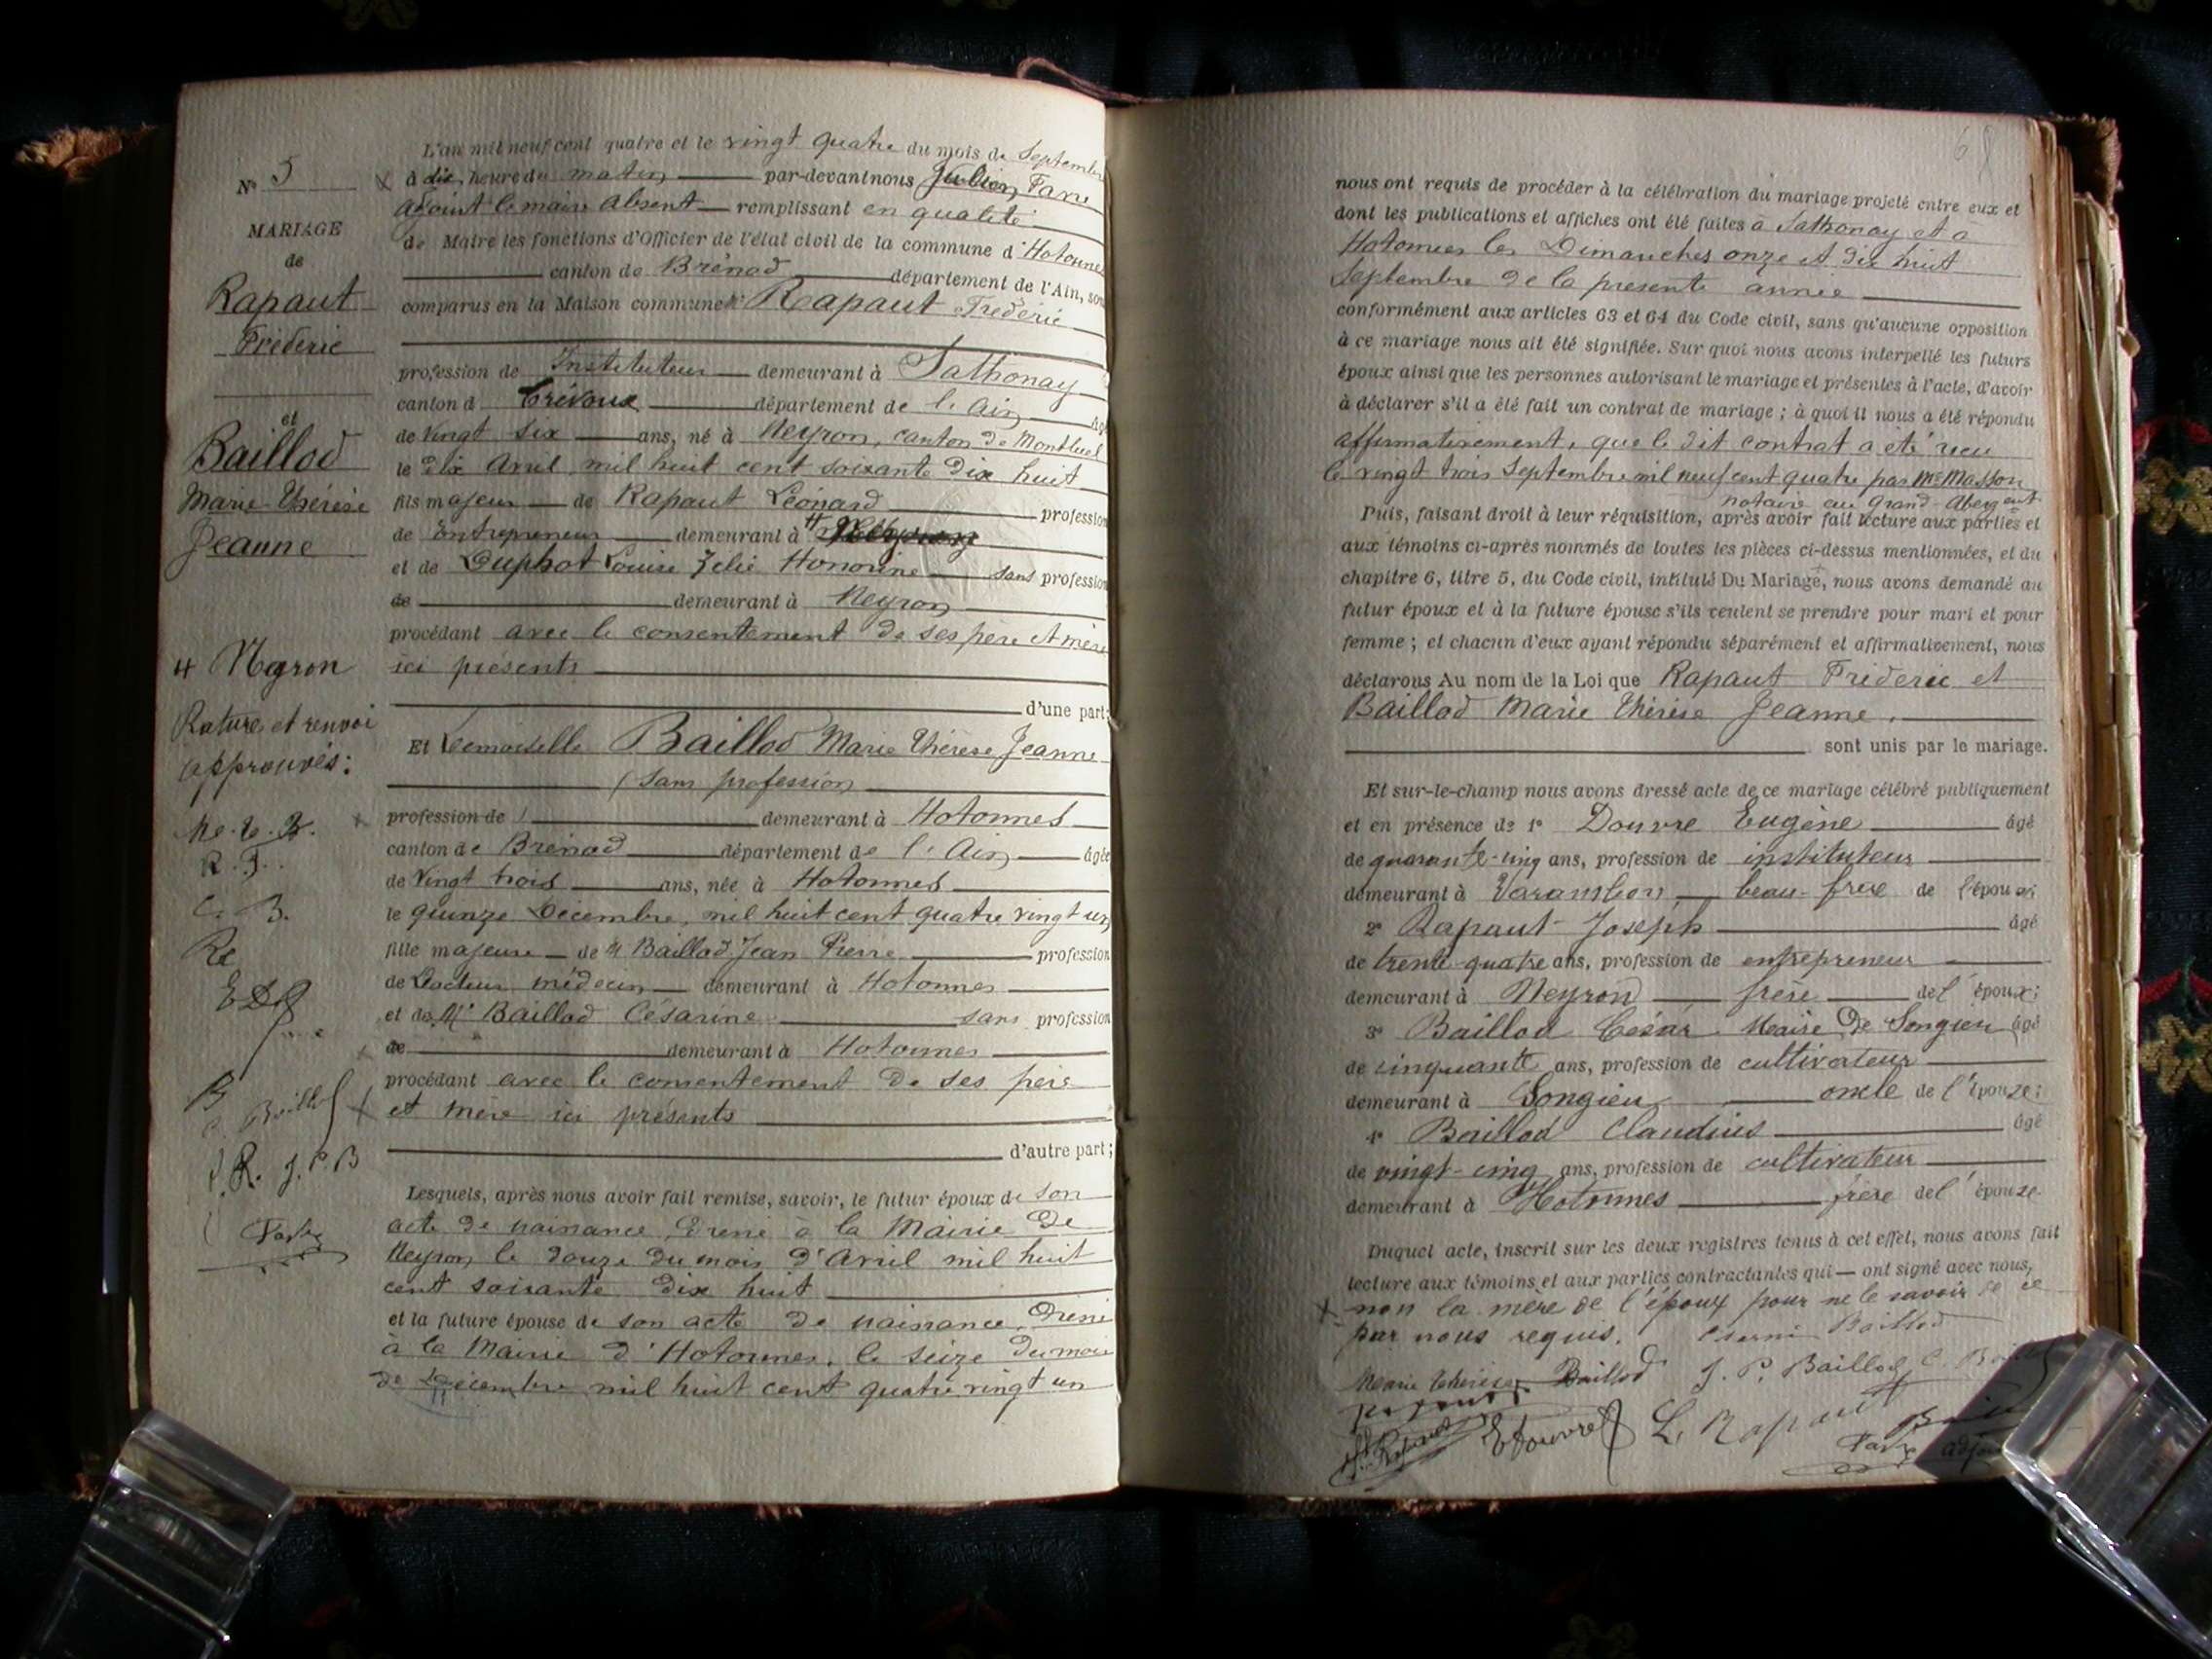 N° 5
MARIAGE
de
Rapaut
Fréderic
et
Baillod
Marie-Thérèse
Jeanne
# Neyron
Rature et renvoi
approuvés:
M. T. B.
R. F.
C. B.
C. Baillod
J. R. J. P. B
L'an mil neuf cent quatre et le vingt quatre du mois de Septembre
à dix heure du matin par-devant nous Julien
adjoint le maire absent remplissant en qualité
de Maire les fonctions d'Officier de l'état civil de la commune d'Hotonnes
canton de Brénod département de l'Ain, sont
comparus en la Maison commune Mr Rapaut Frédéric
profession de Instituteur demeurant à Sathonay
canton d Trévoux département de l'Ain âgé
de Vingt six ans, né à Neyron, canton de Montluel
le dix Avril mil huit cent soixante dix huit
fils majeur de Rapaut Léonard profession
de Entrepreneur demeurant à #
et de Duphot Louise Zélie Honorine sans profession
de demeurant à Neyron
procédant avec le consentement de ses père et mère
ici présents
d'une part;
Et Demoiselle Baillod Marie Thérèse Jeanne
(Sans profession
profession de demeurant à Hotonnes
canton de Brénod département de l'Ain âgée
de Vingt trois ans, née à Hotonnes
le quinze Décembre, mil huit cent quatre vingt un
fille majeure de M Baillod Jean Pierre profession
de Docteur médecin demeurant à Hotonnes
et de Me Baillod Césarine sans profession
de demeurant à Hotonnes
procédant avec le consentement de ses père
et mère ici présents
d'autre part;
Lesquels, après nous avoir fait remise, savoir, le futur époux de son
acte de naissance, dressé à la Mairie de
Neyron le douze du mois d'Avril mil huit
cent soixante dix huit
et la future épouse de son acte de naissance, dressé
à la Mairie d'Hotonnes, le seize du mois
de Décembre mil huit cent quatre vingt un
68
nous ont requis de procéder à la célébration du mariage projeté entre eux et
dont les publications et affiches ont été faites à Sathonay et à
Hotonnes les Dimanches onze et dix huit
Septembre de la presente année
conformément aux articles 63 et 64 du Code civil, sans qu'aucune opposition
à ce mariage nous ait été signifiée. Sur quoi nous avons interpellé les futurs
époux ainsi que les personnes autorisant le mariage et présentes à l'acte, d'avoir
à déclarer s'il a été fait un contrat de mariage ; à quoi il nous a été répondu
affirmativement, que le dit contrat a eté reçu
le vingt trois Septembre mil neuf cent quatre par Me Masson
notaire au Grand-Abergent
Puis, faisant droit à leur réquisition, après avoir fait lecture aux parties et
aux témoins ci-après nommés de toutes les pièces ci-dessus mentionnées, et du
chapitre 6, titre 5, du Code civil, intitulé Du Mariage, nous avons demandé au
futur époux et à la future épouse s'ils veulent se prendre pour mari et pour
femme ; et chacun d'eux ayant répondu séparément et affirmativement, nous
déclarons Au nom de la Loi que Rapaut Fréderic et
Baillod Marie Thérèse Jeanne.
sont unis par le mariage.
Et sur-le-champ nous avons dressé acte de ce mariage célébré publiquement
et en présence de 1° Douvre Eugène âgé
de quarante-cinq ans, profession de instituteur
demeurant à Varambon, beau-frère de l'époux;
2° Rapaut Joseph âgé
de trente-quatre ans, profession de entrepreneur
demeurant à Neyron frère de l'époux;
3° Baillod César Maire de Songieu âgé
de cinquante ans, profession de cultivateur
demeurant à Songieu oncle de l'épouze;
4° Baillod Claudius âgé
de vingt-cinq ans, profession de cultivateur
demeurant à Hotonnes frère de l'épouze
Duquel acte, inscrit sur les deux registres tenus à cet effet, nous avons fait
lecture aux témoins et aux parties contractantes qui — ont signé avec nous,
non la mère de l'époux pour ne le savoir de ce
par nous requis. Baillod
Marie Thérèse Baillod J. P. Baillod C. Baillod
EDouvre L. Rapaut